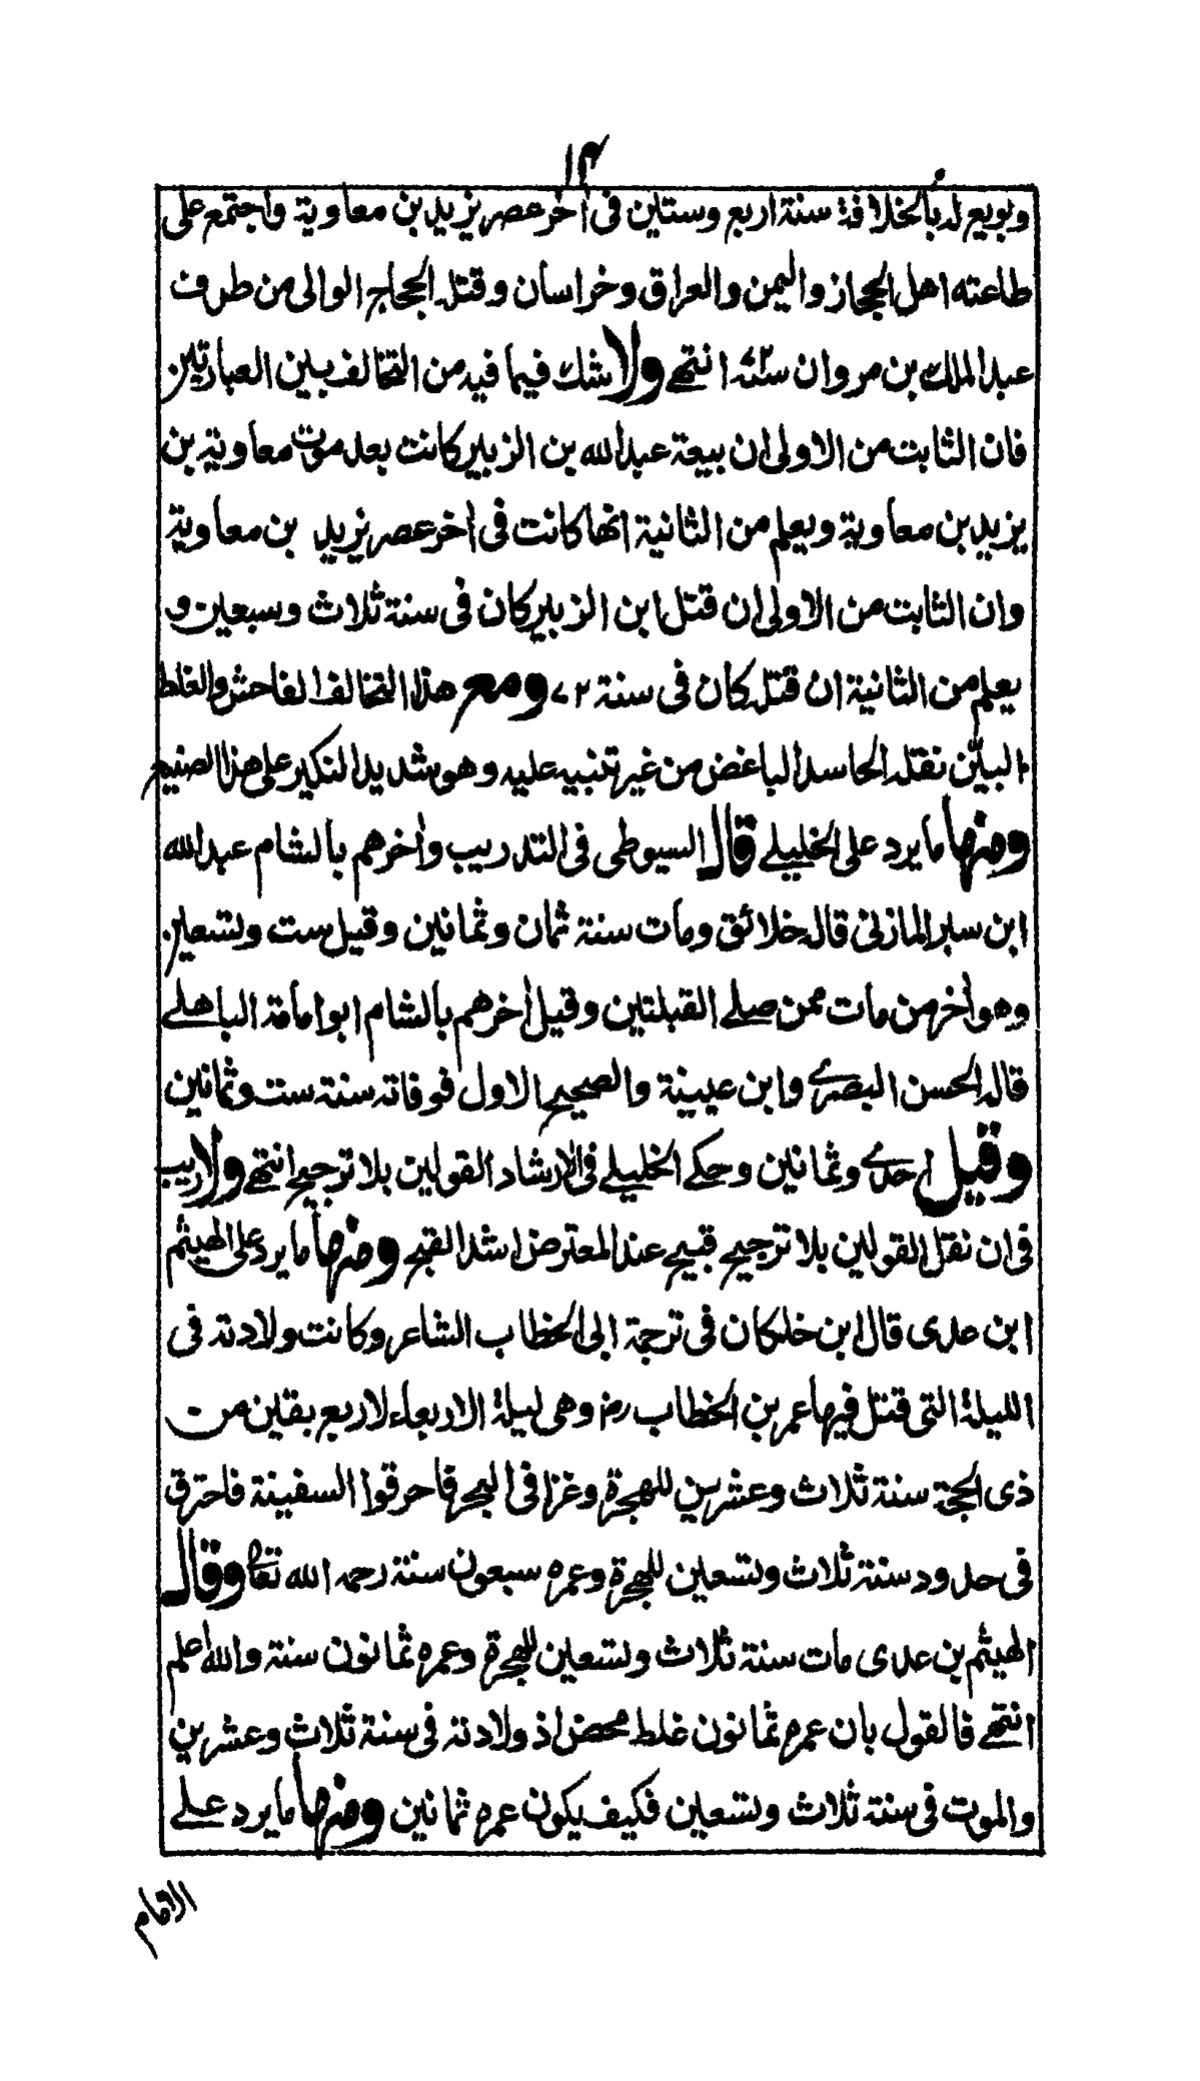 ١٤
وبويع له بالخلافة سنة اربع وستين فى آخر عصر يزيد بن معاوية واجتمع على
طاعته اهل الحجاز واليمن والعراق وخراسان وقتله الحجاج الوالى من طرف
عبد الملك بن مروان سنة ٧٢ انتهے ولا شك فيما فيه من التخالف بين العبارتين
فان الثابت من الاولى ان بيعة عبد الله بن الزبير كانت بعد موت معاوية بن
يزيد بن معاوية ويعلم من الثانية انها كانت فى آخر عصر يزيد بن معاوية
وان الثابت من الاولى ان قتل ابن الزبير كان فى سنة ثلاث وسبعين و
يعلم من الثانية ان قتله كان فى سنة ٧٢ ومع هذا التخالف الفاحش والغلط
البيّن نقله الحاسد الباغض من غير تنبيه عليه وهو شديد النكير على هذا الصنيع
ومنها ما يرد على الخليلے قال السيوطى فى التدريب وآخرهم بالشام عبد الله
ابن بسر المازنى قاله خلائق ومات سنة ثمان وثمانين وقيل ست وتسعين
وهو آخر من مات ممن صلے القبلتين وقيل آخرهم بالشام ابو امامة الباهلے
قاله الحسن البصرے وابن عيينة والصحيح الاول فوفاته سنة ست وثمانين
وقيل احدے وثمانين وحكے الخليلے فى الارشاد القولين بلا ترجيح انتهے ولا ريب
فى ان نقل القولين بلا ترجيح قبيح عند المعترض اشد القبح ومنها ما يرد على الهيثم
ابن عدى قال ابن خلكان فى ترجمة ابى الخطاب الشاعر وكانت ولادته فى
الليلة التى قتل فيها عمر بن الخطاب رض وهى ليلة الاربعاء لاربع بقين من
ذى الحجة سنة ثلاث وعشرين للهجرة وغزا فى البحر فاحرقوا السفينة فاحترق
فى حدود سنة ثلاث وتسعين للهجرة وعمره سبعون سنة رحمه الله تعالى وقال
الهيثم بن عدى مات سنة ثلاث وتسعين للهجرة وعمره ثمانون سنة والله اعلم
انتهے فالقول بان عمره ثمانون غلط محض اذ ولادته فى سنة ثلاث وعشرين
والموت فى سنة ثلاث وتسعين فكيف يكون عمره ثمانين ومنها ما يرد علے
الامام